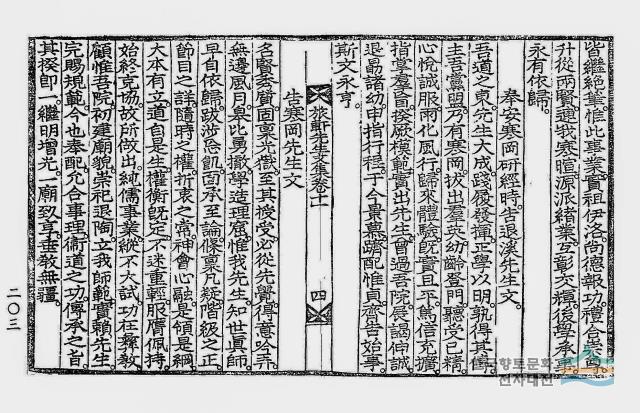 皆繼絶業惟此事業實祖伊洛尚德報功禮合崇
升從兩賢邇我寒暄源派緒業互彰交輝後學承事
永有依歸
奉安寒岡硏經時告退溪先生文
吾道之東先生大成踐履發揮正學以明孰得其傳
主吾黨盟乃有寒岡拔出羣英幼齡登門聽受已精
心悅誠服雨化風行歸來體驗旣實且平篤信充擴
指掌羣盲揆厥模範實出先生曾過吾院展謁伸誠
退昜諸幼申指行程于今景慕躋配惟貞齊告始事
斯文永亨
旅軒先生文集卷十一
四
告寒岡先生文
名賢委質固稟光嶽至其授受必從先覺得意吟弄
無邊風月皋比勇撤學造理窟惟我先生知世眞師
早自依歸跋涉忘飢面承至論條稟凡疑階級之正
節目之詳隨時之權折衷之常神會心融是領是綱
大本有立道自是生權衡旣定不迷重輕服膺佩持
始終克協故所做出純儒事業縱不大試功在釋敎
顧惟吾院初建廟貌崇祀退陶立我師範實賴先生
完賜規範今也奉配允合事理衛道之功傳承之旨
其揆卽一繼明增光一廟致享垂敎無疆
二〇三
향토문화
전자대전